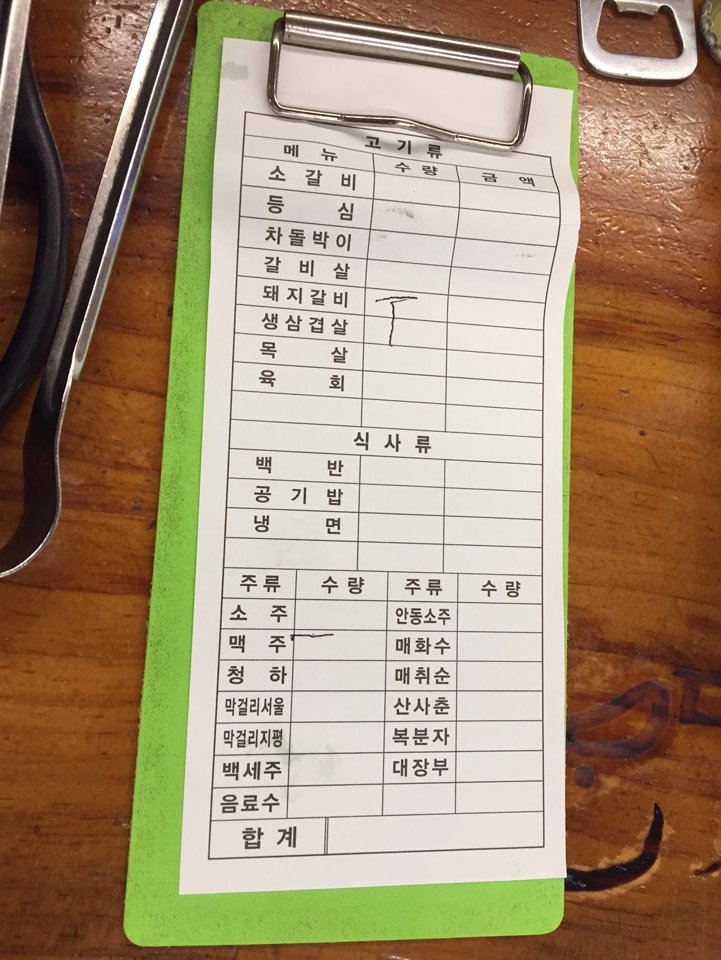 고기류
메뉴 수량 금액
소갈비
등심
차돌박이
갈비살
돼지갈비
생삼겹살
목살
육회
식사류
백반
공기밥
냉면
주류 수량 주류 수량
소주 안동소주
맥주 매화수
청하 매취순
막걸리서울 산사춘
막걸리지평 복분자
백세주 대장부
음료수
합계